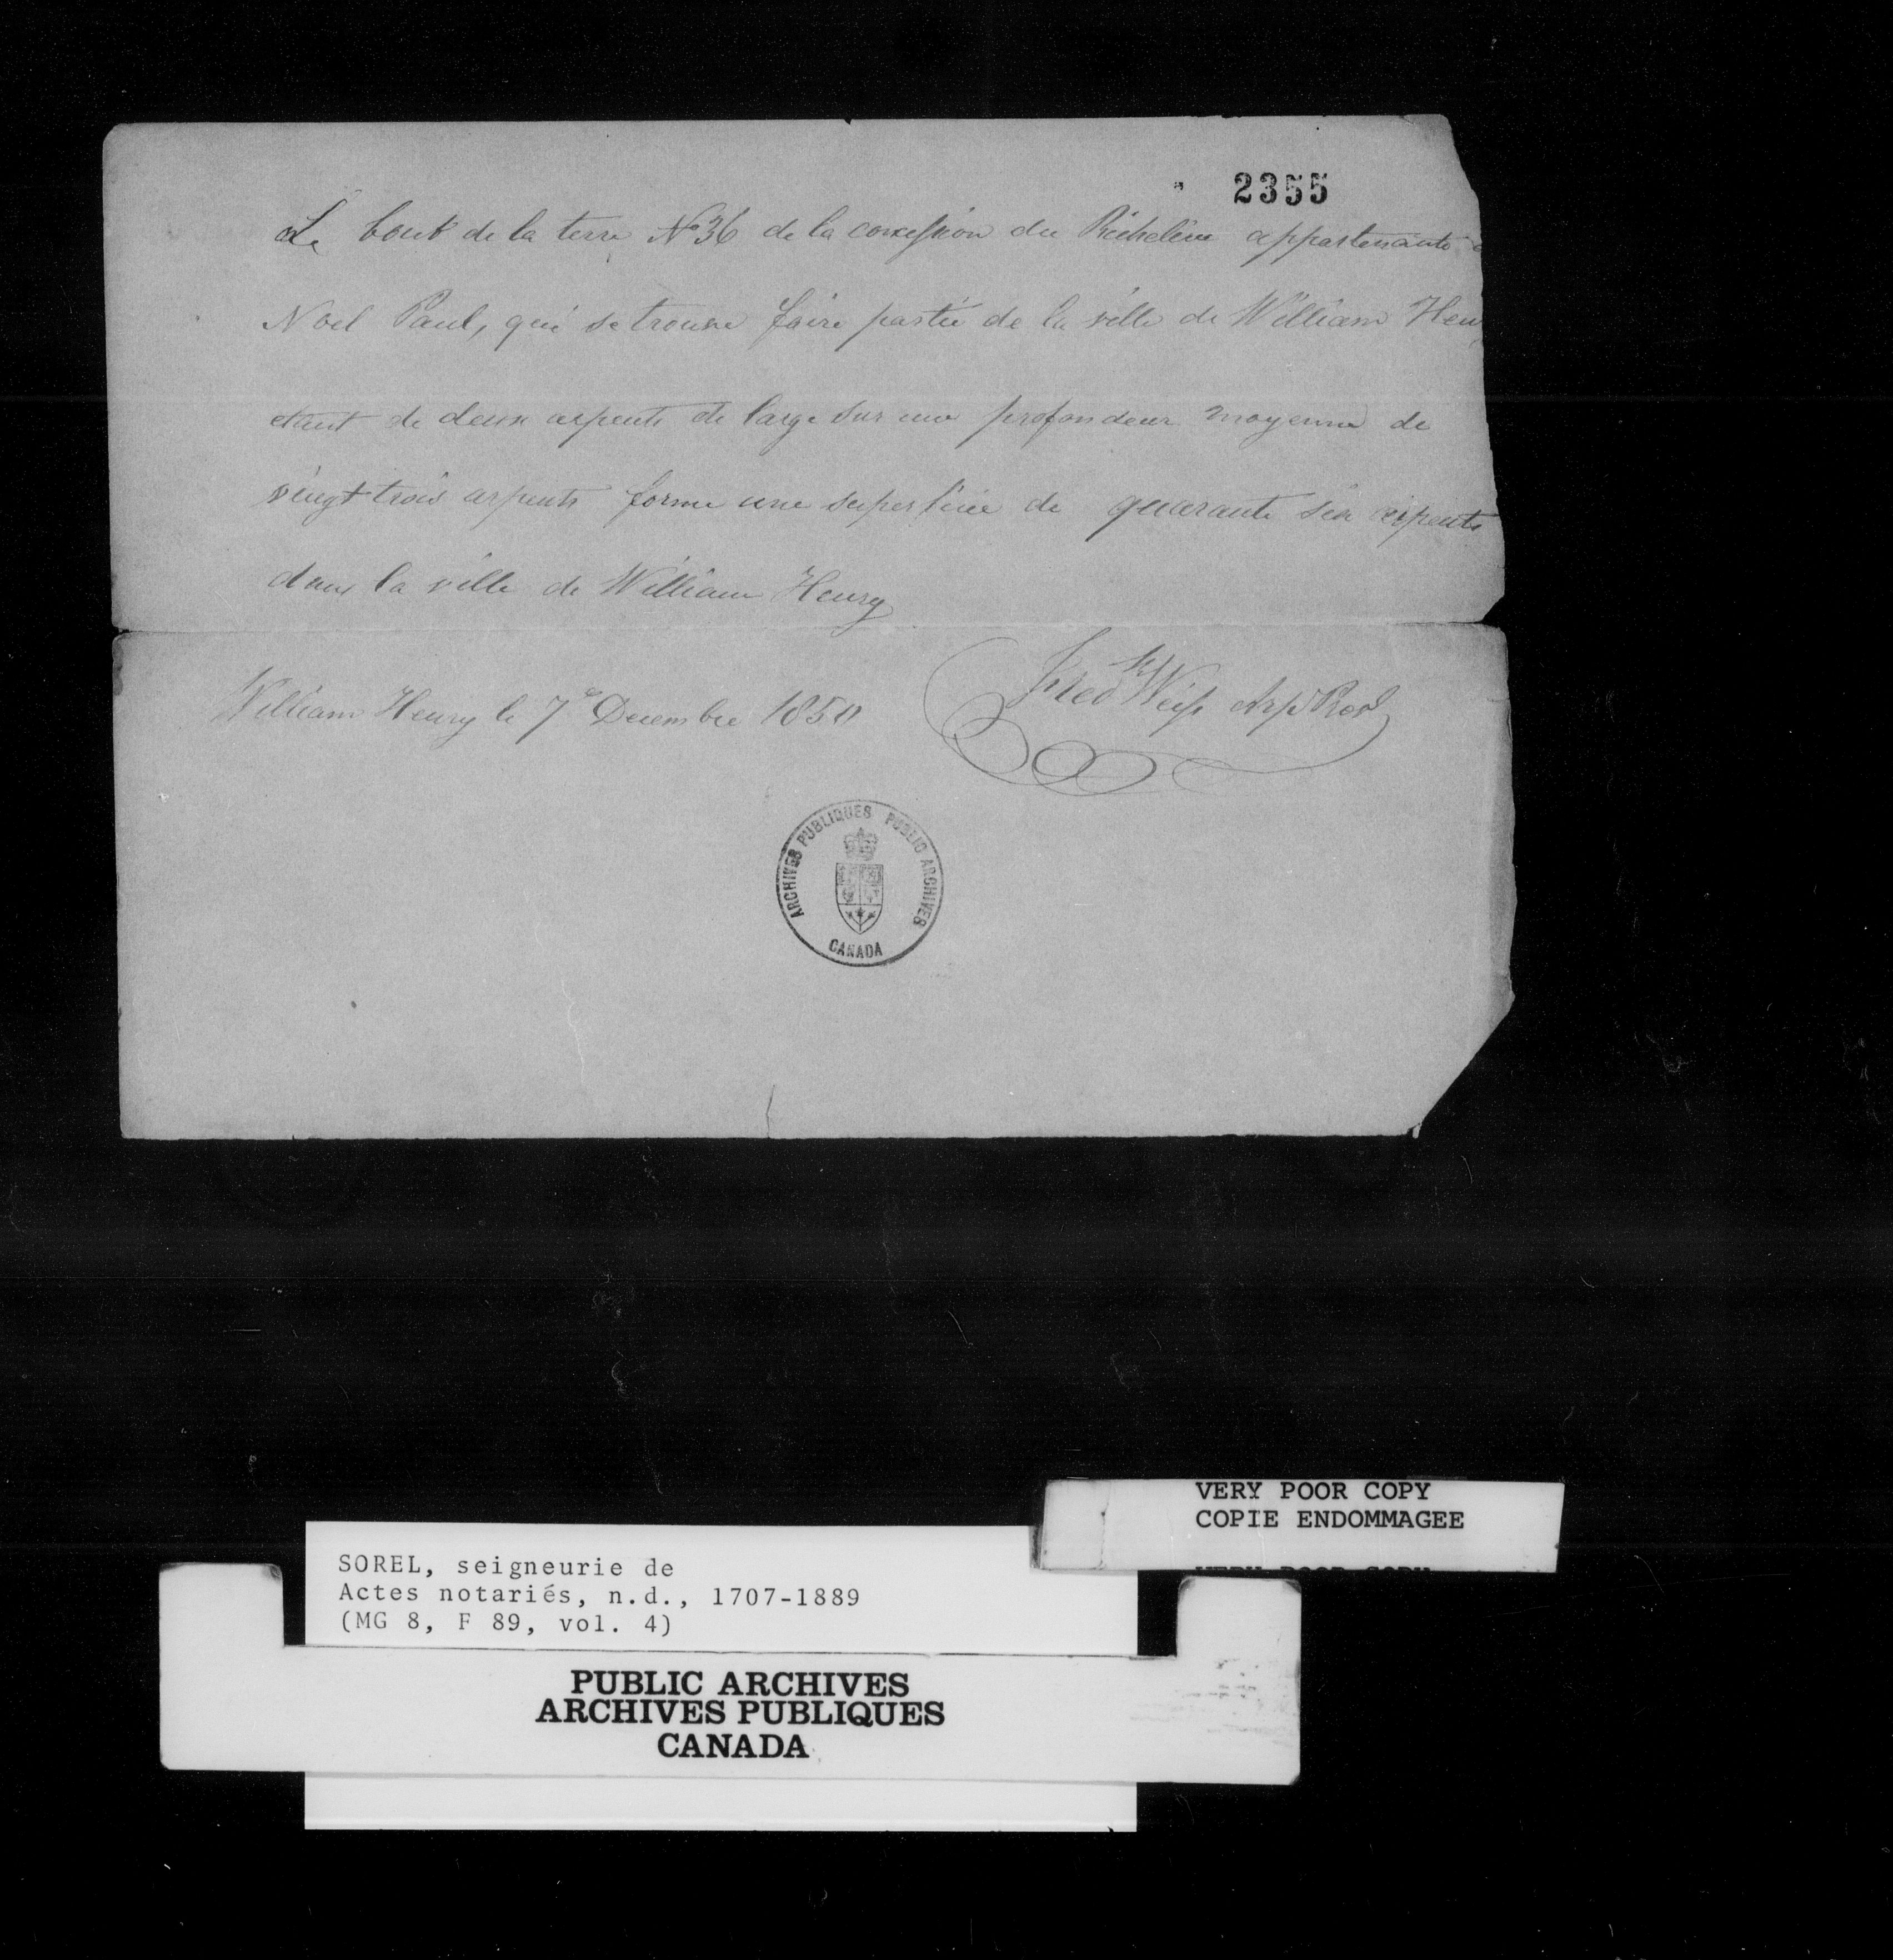 2355
Le bout de la terre No 36 de la concession du Richelieu appartenante
Noel Paul, qui se trouve faire partie de la ville de William Hen
etant de deux arpents de large sur une profondeur moyenne de
vingt trois arpents forme une superficie de quarante six arpents
dans la ville de William Henry
William Henry le 7e Decembre 1850
Fredk Weiss Arp
ARCHIVES PUBLIQUES PUBLIC ARCHIVES
CANADA
VERY POOR COPY
COPIE ENDOMMAGEE
VERY POOR COPY
SOREL, seigneurie de
Actes notariés, n.d., 1707-1889
(MG 8, F 89, vol. 4)
PUBLIC ARCHIVES
ARCHIVES PUBLIQUES
CANADA